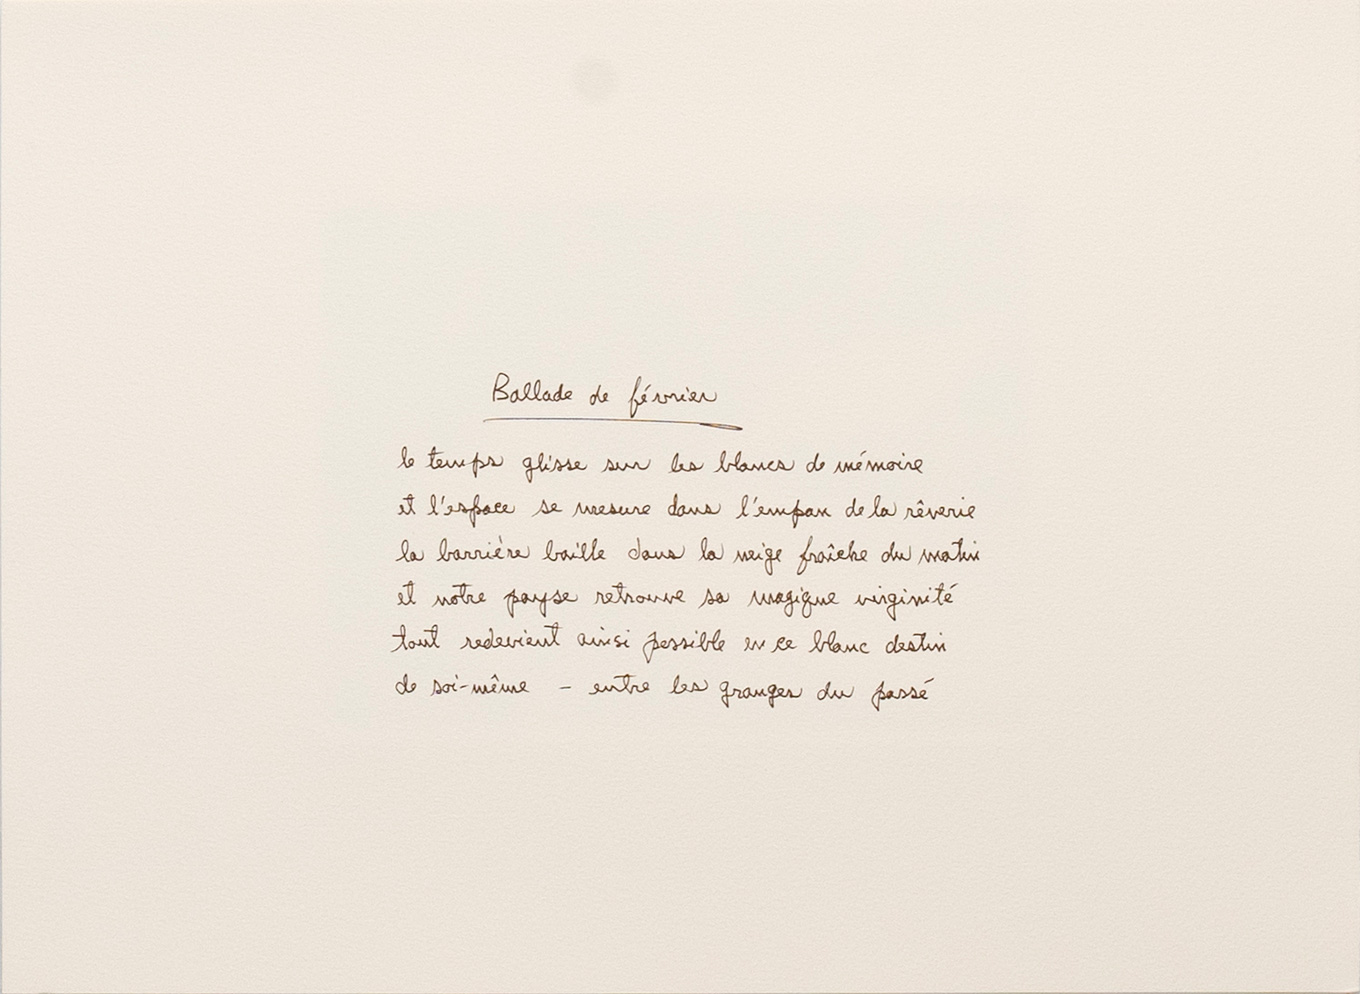 Ballade de février
le temps glisse sur les blancs de mémoire
et l'espace se mesure dans l'empan de la rêverie
la barrière baille dans la neige fraîche du matin
et notre payse retrouve sa magique virginité
tout redevient ainsi possible en ce blanc destin
de soi-même – entre les granges du passé